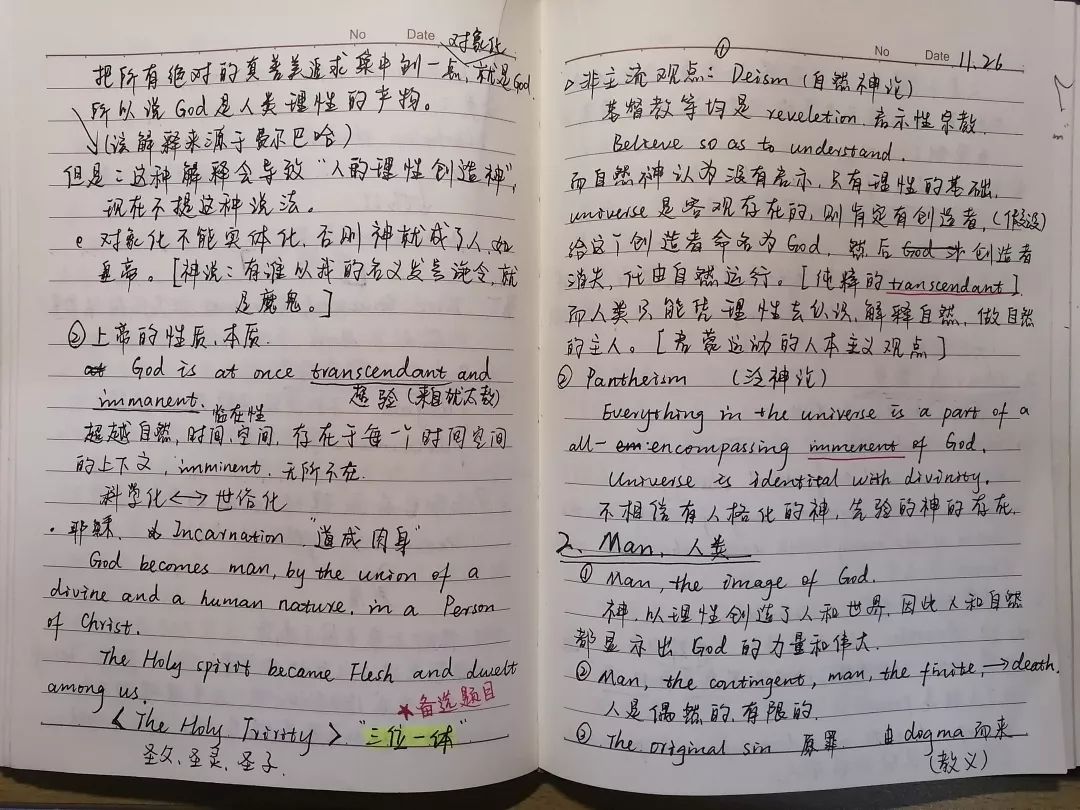 No Date
对象化
把所有绝对的真善美追求集中到一点,就是God.
所以说God是人类理性的产物。
(该解释来源于费尔巴哈)
但是:这种解释会导致“人的理性创造神”,
现在不提这种说法。
e 对象化不能实体化,否则神就成了人,如
皇帝。[神说:有谁以我的名义发号施令,就
是魔鬼。]
②上帝的性质、本质.
God is at once transcendant and
immanent. 超验(来自犹太教)
临在性
超越自然,时间、空间,存在于每一个时间空间
的上下文,imminent.无所不在.
科学化<->世俗化
·耶稣. Incarnation “道成肉身”
God becomes man, by the union of a
divine and a human nature. in a Person
of Christ.
The Holy spirit became Flesh and dwelt
among us. ★备选题目
<The Holy Trinity> “三位一体”
圣父、圣灵、圣子.
① No Date 11.26
▷非主流观点: Deism (自然神论)
基督教等均是 reveletion.启示性宗教.
Believe so as to understand.
而自然神认为没有启示,只有理性的基础.
universe是客观存在的,则肯定有创造者,(假设)
给这个创造者命名为God, 然后God 创造者
消失,任由自然运行。[纯粹的transcendant]
而人类只能凭理性去认识,解释自然,做自然
的主人。[启蒙运动的人本主义观点]
② Pantheism (泛神论)
Everything in the universe is a part of a
all-encompassing immenent of God.
Universe is identital with divinity.
不相信有人格化的神,先验的神的存在.
2. Man. 人类
① Man, the image of God.
神,以理性创造了人和世界.因此人和自然
都显示出God的力量和伟大.
② Man, the contingent, man, the finite, →death.
人是偶然的.有限的.
③ The original sin 原罪 由dogma而来
(教义)